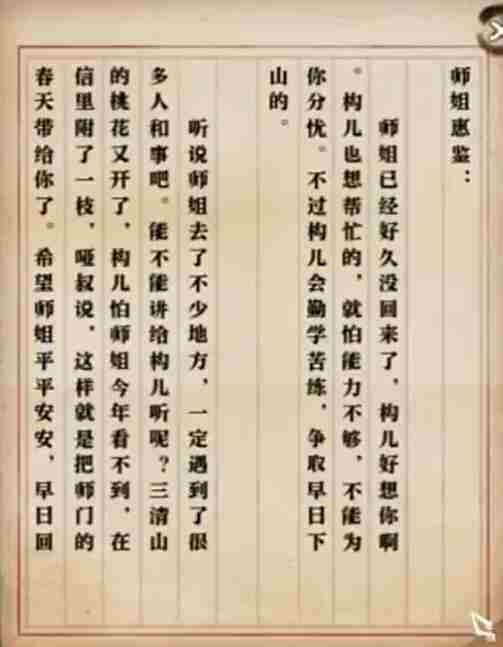 师姐惠鉴：
师姐已经好久没回来了，构儿好想你啊
。构儿也想帮忙的，就怕能力不够，不能为
你分忧。不过构儿会勤学苦练，争取早日下
山的。
听说师姐去了不少地方，一定遇到了很
多人和事吧。能不能讲给构儿听呢？三清山
的桃花又开了，构儿怕师姐今年看不到，在
信里附了一枝，哑叔说，这样就是把师门的
春天带给你了。希望师姐平平安安，早日回